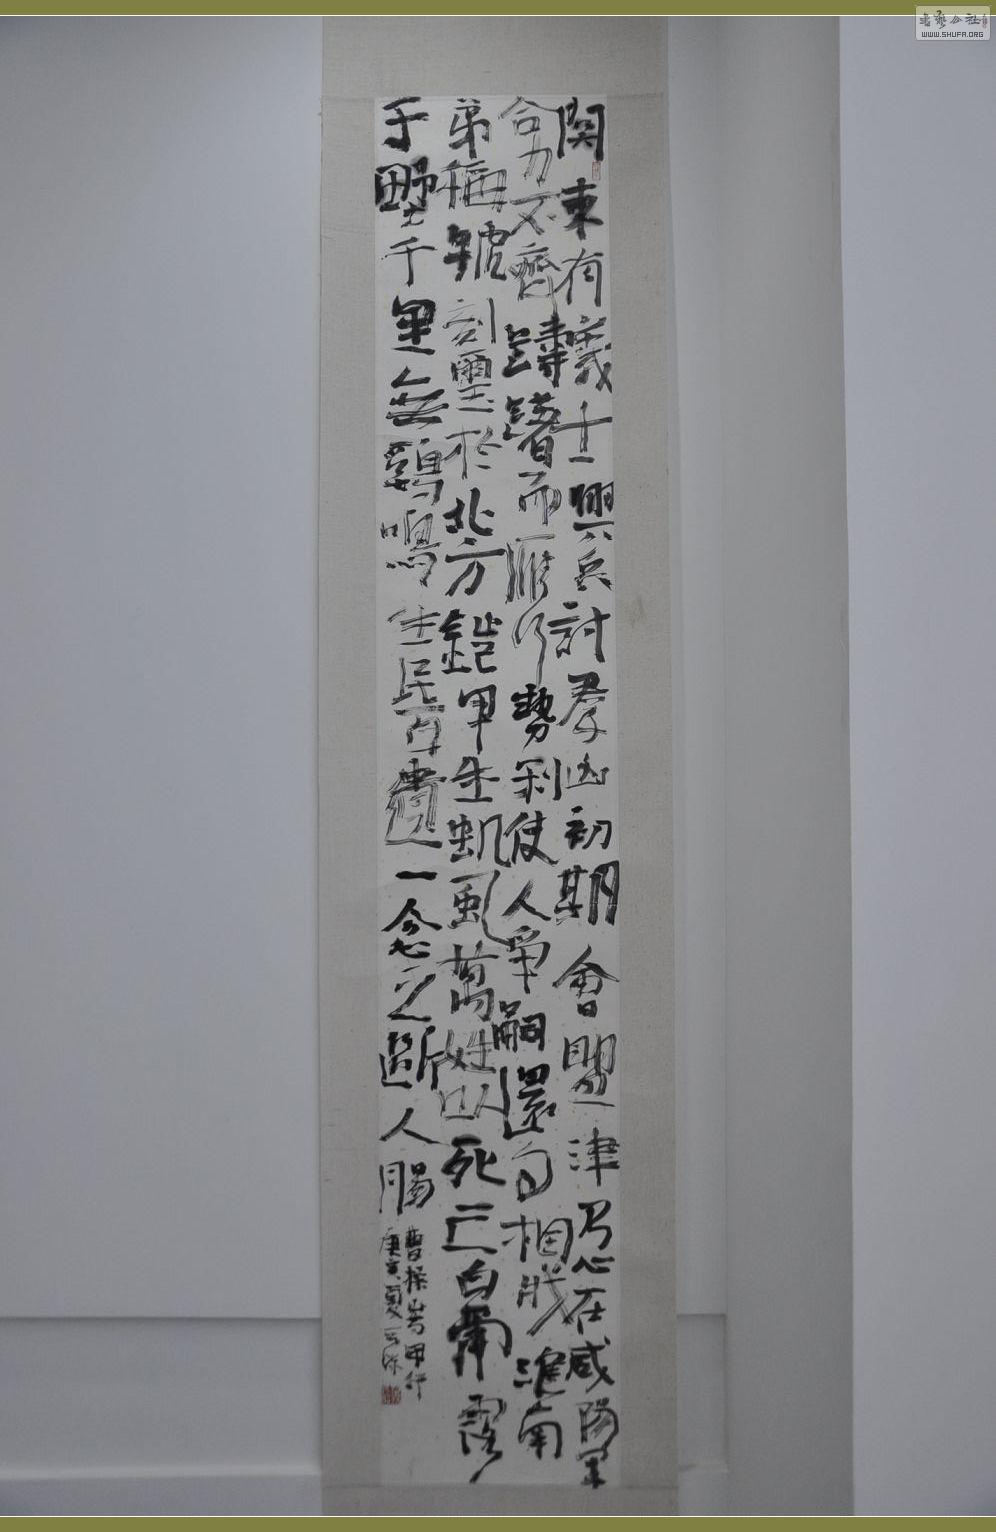 關東有義士興兵討羣凶初期會盟津乃心在咸陽軍
合力不齊躊躇而雁行勢利使人爭嗣還自相戕淮南
弟稱號刻璽於北方鎧甲生虮虱萬姓以死亡白骨露
于野千里無鷄鳴生民百遺一念之斷人腸
曹操蒿里行
庚寅夏
書藝公社
WWW.SHUFA.ORG